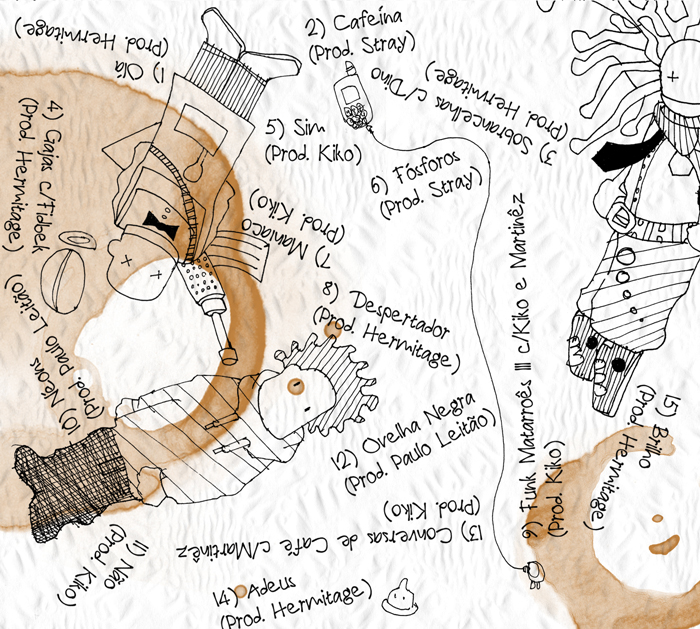 1) Olá
(Prod. Hermitage)
2) Cafeína
(Prod. Stray)
3) Sobrancelhas c/Dino
(Prod. Hermitage)
4) Gajas c/Fidbek
(Prod. Hermitage)
5) Sim
(Prod. Kiko)
6) Fósforos
(Prod. Stray)
7) Maníaco
(Prod. Kiko)
8) Despertador
(Prod. Hermitage)
9) Funk Matarroês III c/Kiko e Martinêz
(Prod. Kiko)
10) Neons
(Prod. Paulo Leitão)
11) Não
(Prod. Kiko)
12) Ovelha Negra
(Prod. Paulo Leitão)
13) Conversas de Café c/Martinêz
(Prod. Kiko)
14) Adeus
(Prod. Hermitage)
15) Brilho
(Prod. Hermitage)